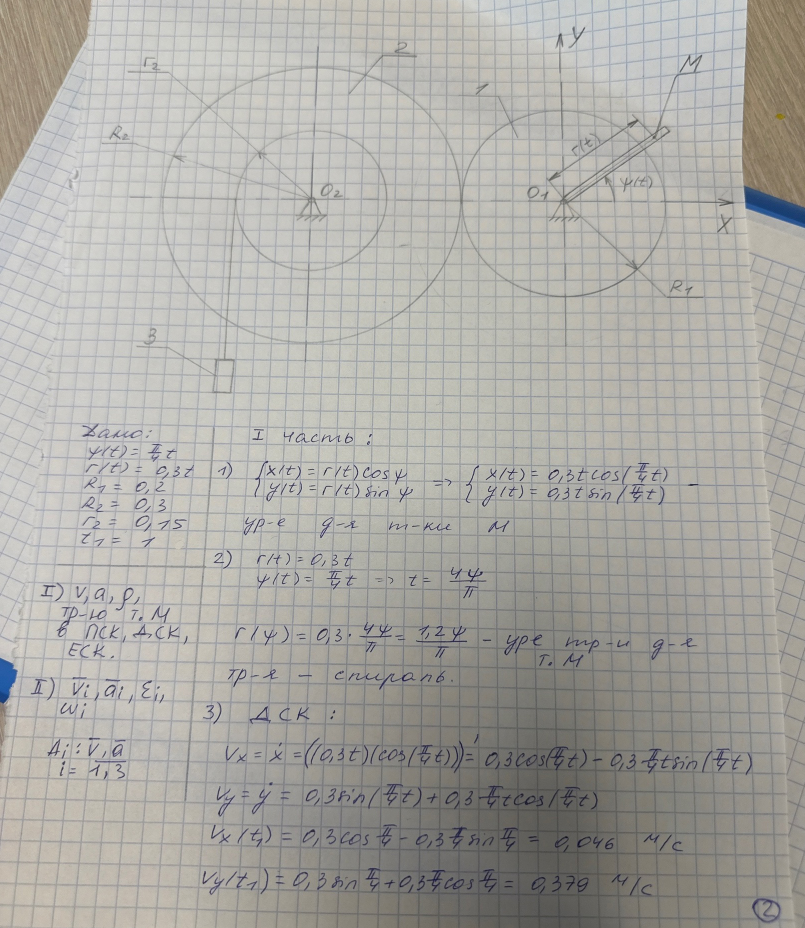 2
Y
r₂
M
1
R₂
r(t)
O₂
O₁
ψ(t)
X
R₁
3
Дано:
ψ(t) = π/4 t
r(t) = 0,3t
R₁ = 0,2
R₂ = 0,3
r₂ = 0,15
t₁ = 1
I) v, a, ρ,
тр-ю т. М
в ПСК, ДСК,
ЕСК.
II) v̄i, āi, εi,
ωi
Ai: v̄, ā
i = 1,3
I часть:
1) { x(t) = r(t) cos ψ => { x(t) = 0,3t cos(π/4 t) –
{ y(t) = r(t) sin ψ { y(t) = 0,3t sin(π/4 t)
ур-е д-я т-ки М
2) r(t) = 0,3t
ψ(t) = π/4 t => t = 4ψ/π
r(ψ) = 0,3 · 4ψ/π = 1,2ψ/π – ур-е тр-и д-я
т. М
тр-я – спираль.
3) ДСК:
Vx = ẋ = ((0,3t)(cos(π/4 t)))' = 0,3cos(π/4 t) – 0,3 π/4 t sin(π/4 t)
Vy = ẏ = 0,3sin(π/4 t) + 0,3 π/4 t cos(π/4 t)
Vx(t₁) = 0,3cos π/4 – 0,3 π/4 sin π/4 = 0,046 м/с
Vy(t₁) = 0,3sin π/4 + 0,3 π/4 cos π/4 = 0,379 м/с
2